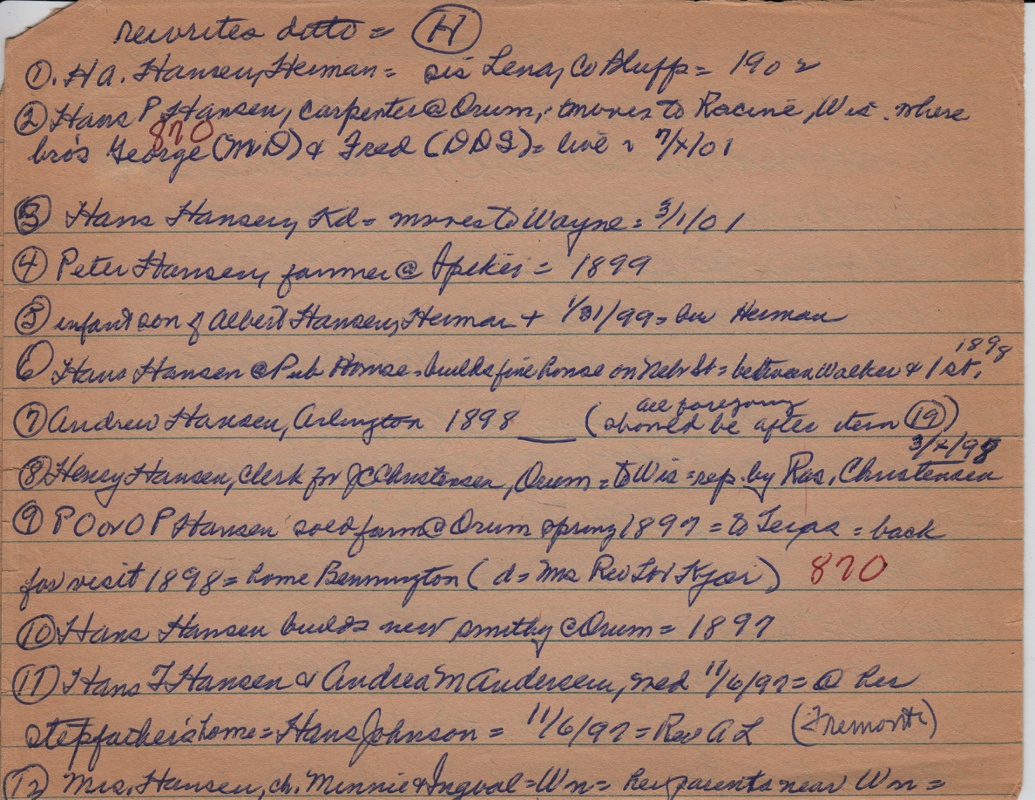 rewrites ditto = (H)
①. H A. Hansen, Herman = sis Lena, Co Bluffs = 1902
② Hans P Hansen, carpenter @ Orum, moves to Racine, Wis. where
870
bro's George (MD) & Fred (DDS) = live 7/x/01
③ Hans Hansen, Kd = moves to Wayne = 3/1/01
④ Peter Hansen, farmer @ Spiker = 1899
⑤ infant son of Albert Hansen, Herman + 1/31/99 = bu Herman
1898
⑥ Hans Hansen @ Pub House = builds fine house on Nebr St = between Walker & 1st.
all foregoing
⑦ Andrew Hansen, Arlington 1898 __ (should be after item ⑲)
3/x/98
⑧ Henry Hansen, clerk for JC Christensen, Orum = to Wis = rep. by Ras. Christensen
⑨ P O or O P Hansen sold farm @ Orum spring 1897 = to Texas = back
for visit 1898 = home Bennington (d = Mrs Rev LW Kjar) 870
⑩ Hans Hansen builds new smithy @ Orum = 1897
⑪ Hans J Hansen & Andrea M Andersen, wed 11/6/97 = @ her
stepfather's home = Hans Johnson = 11/6/97 = Rev A L (Fremont)
⑫ Mrs. Hansen, ch. Minnie & Ingval = Wn = her parents near Wn =